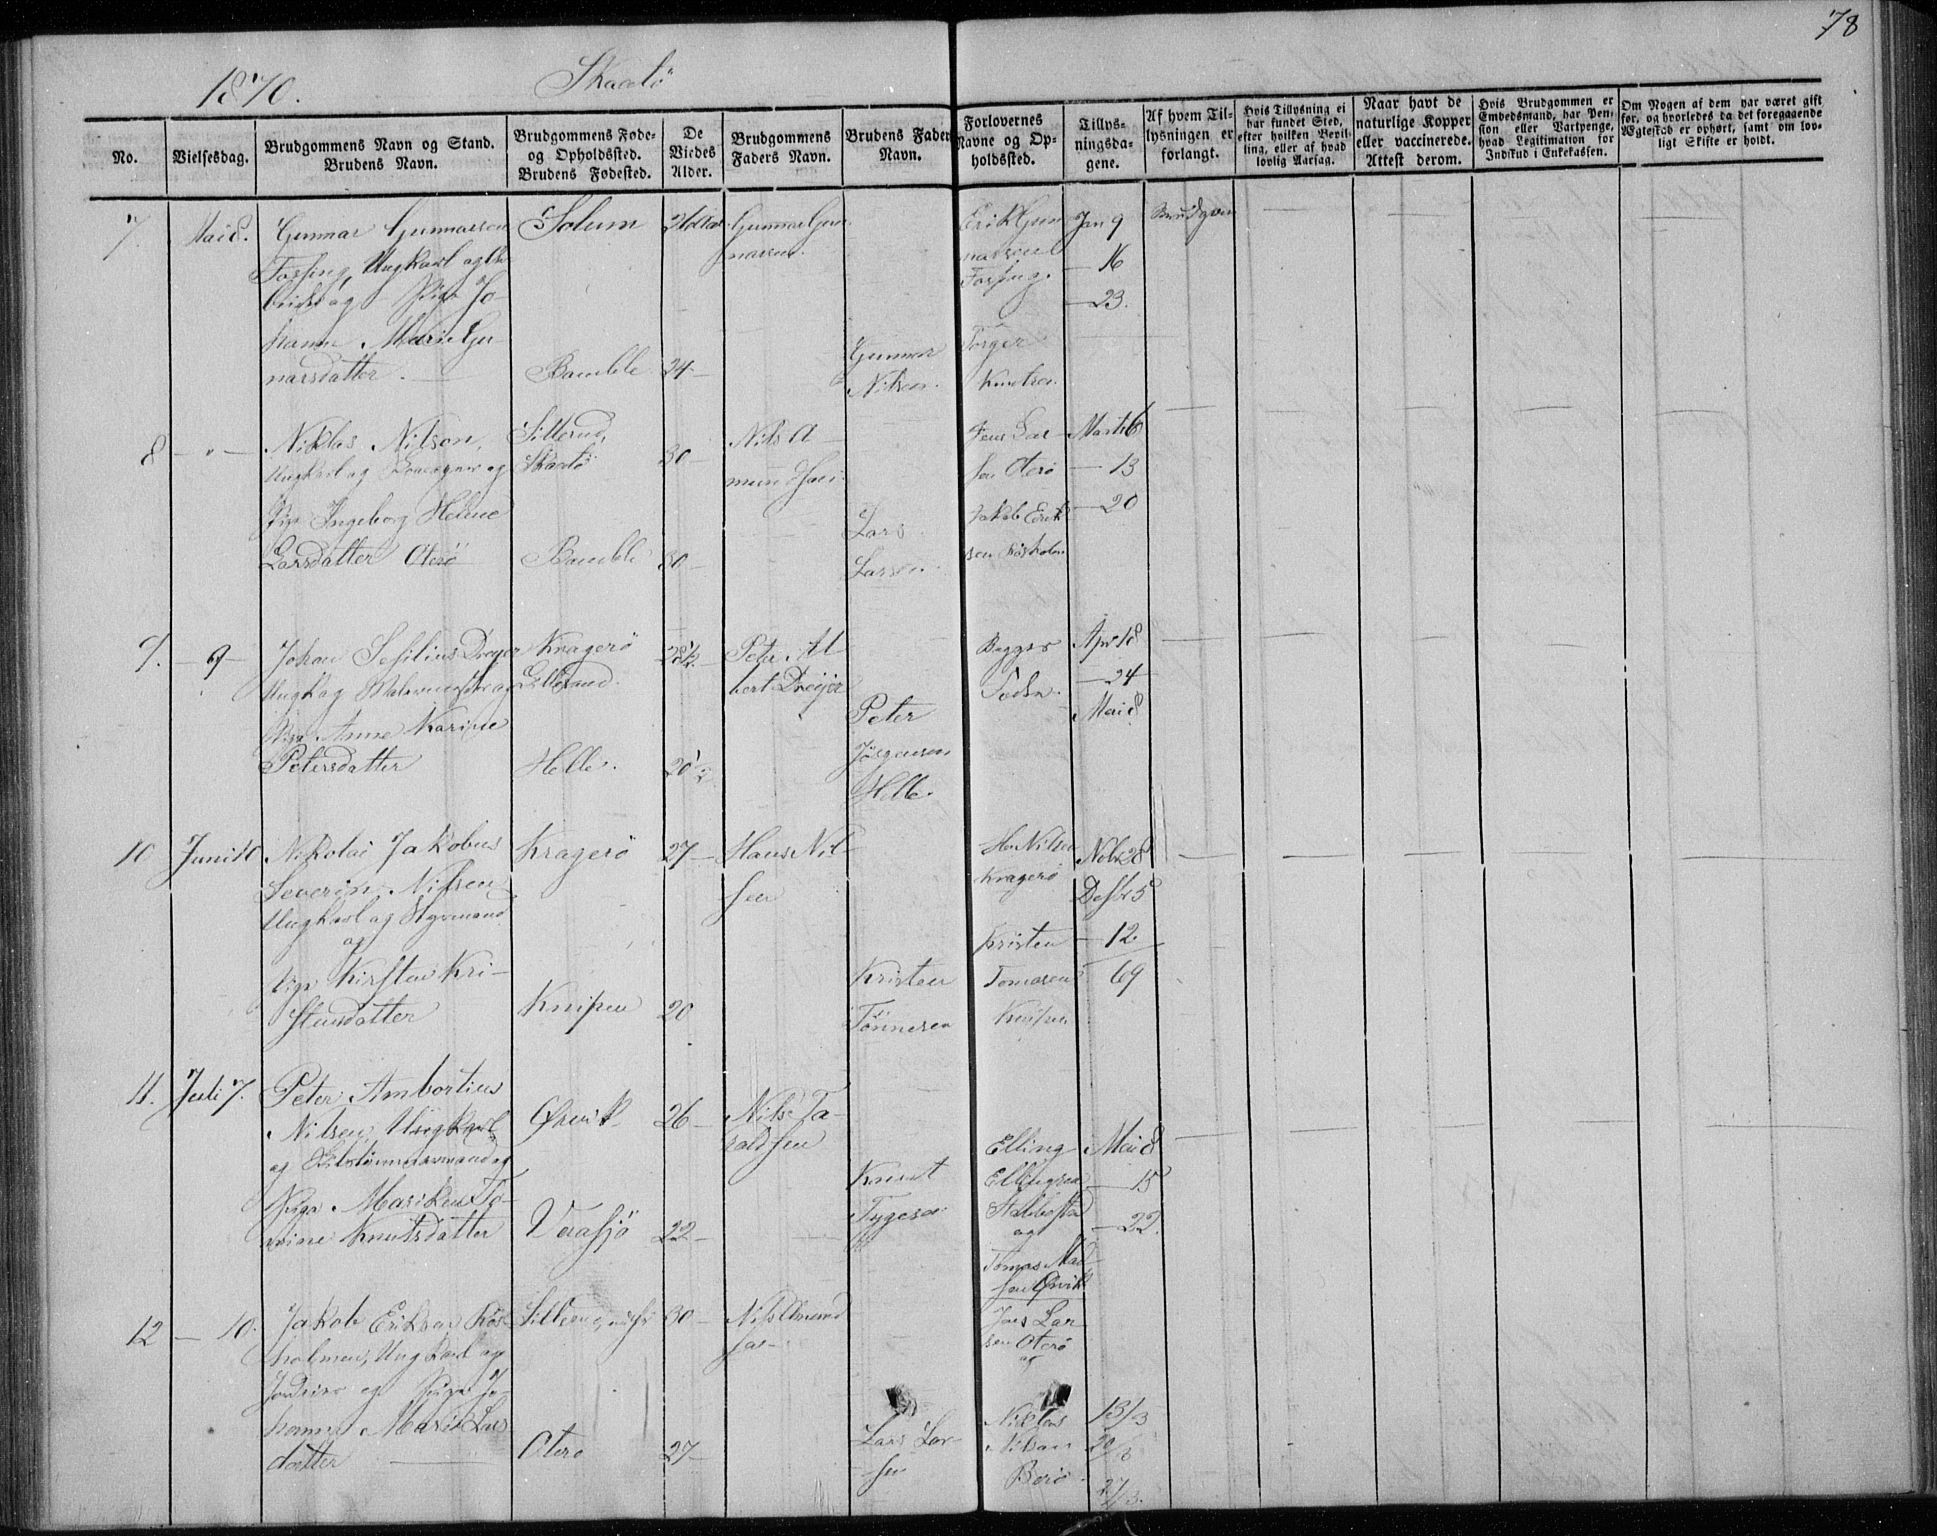 78
1870. Skaatö
No.
Vielsesdag.
Brudgommens Navn og Stand.
Brudens Navn.
Brudgommens Føde-
og Opholdssted.
Brudens Fødested.
De
Viedes
Alder.
Brudgommens
Faders Navn.
Brudens Faders
Navn.
Forlovernes
Navne og Op-
holdssted.
Tillys-
ningsda-
gene.
Af hvem Til-
lysningen er
forlangt.
Hvis Tillysning ei
har fundet Sted,
efter hvilken Bevil-
ling, eller af hvad
lovlig Aarsag.
Naar havt de
naturlige Kopper
eller vaccinerede.
Attest derom.
Hvis Brudgommen er
Embedsmand, har Pen-
sion eller Vartpenge,
hvad Legitimation for
Indskud i Enkekassen.
Om Nogen af dem har været gift
før, og hvorledes da det foregaaende
Ægteskab er ophørt, samt om lov-
ligt Skifte er holdt.
7.
Mai 8.
Gunnar Gunnarsen
Fossing, Ungkarl og
og Pige Jo-
hanne Marie Gun-
narsdatter.
Solum
Bamble
24
Gunnar Gun-
narsen.
Gunnar
Nilsen.
Erik Gun
narsen
Fossing.
Torger
Knutsen.
Jan 9
— 16
— 23.
Brudgom
8 — " —
Niklas Nilsen,
Ungkarl og og
Pige Ingeborg Helene
Larsdatter Oterö
Sillerud,
Skaatö
Bamble
30
30
Nils A
mundsen.
Lars
Larsen.
Jens Lar
sen Oterö
Jakob Erik
sen Rösholm
Marts 6
— 13
— 20
9. — 9 —
Johan Sesilius Dreyer
Ungk og og
Pige Anne Karine
Petersdatter
Kragerö
Lillesand.
Helle.
28 1/2
20 1/2
Peter Al
bert Dreijer
Peter
Jörgensen
Helle.
Apr 18
— 24
Mai 8
10
Juni 10
Nikolai Jakobus
Severin Nilsen
Ungkarl og Styrmand
og
Pige Kirsten Kri-
stensdatter
Kragerö
Knipen
27
20
Hans Nil
sen
Kristen
Tönnesen
H Nilsen
Kragerö
Kristen
Tomasen
Knipen
Nobr 28
Desbr 5
— 12
69
11.
Juli 7.
Peter Ambortius
Nilsen Ungkarl
og og
Pige Mariken To-
mine Knutsdatter
Ørvik
26
22
Nils Ta-
raldsen
Knut
Tygesen
Elling
Ellingsen
Stabbestad
og
Tomas Mad-
sen Ørvik
Mai 8
— 15
— 22.
12 — 10.
Jakob Eriksen Rös-
holmen, Ungkarl og
og Pige Jo-
hanne Marie Lars
datter
Oterö
30
27
Nils Amund
sen
Lars Lar-
sen
Jens Lar
sen Oterö
og
Niklas
Nilsen
Berö
13/3
20/3
27/3.